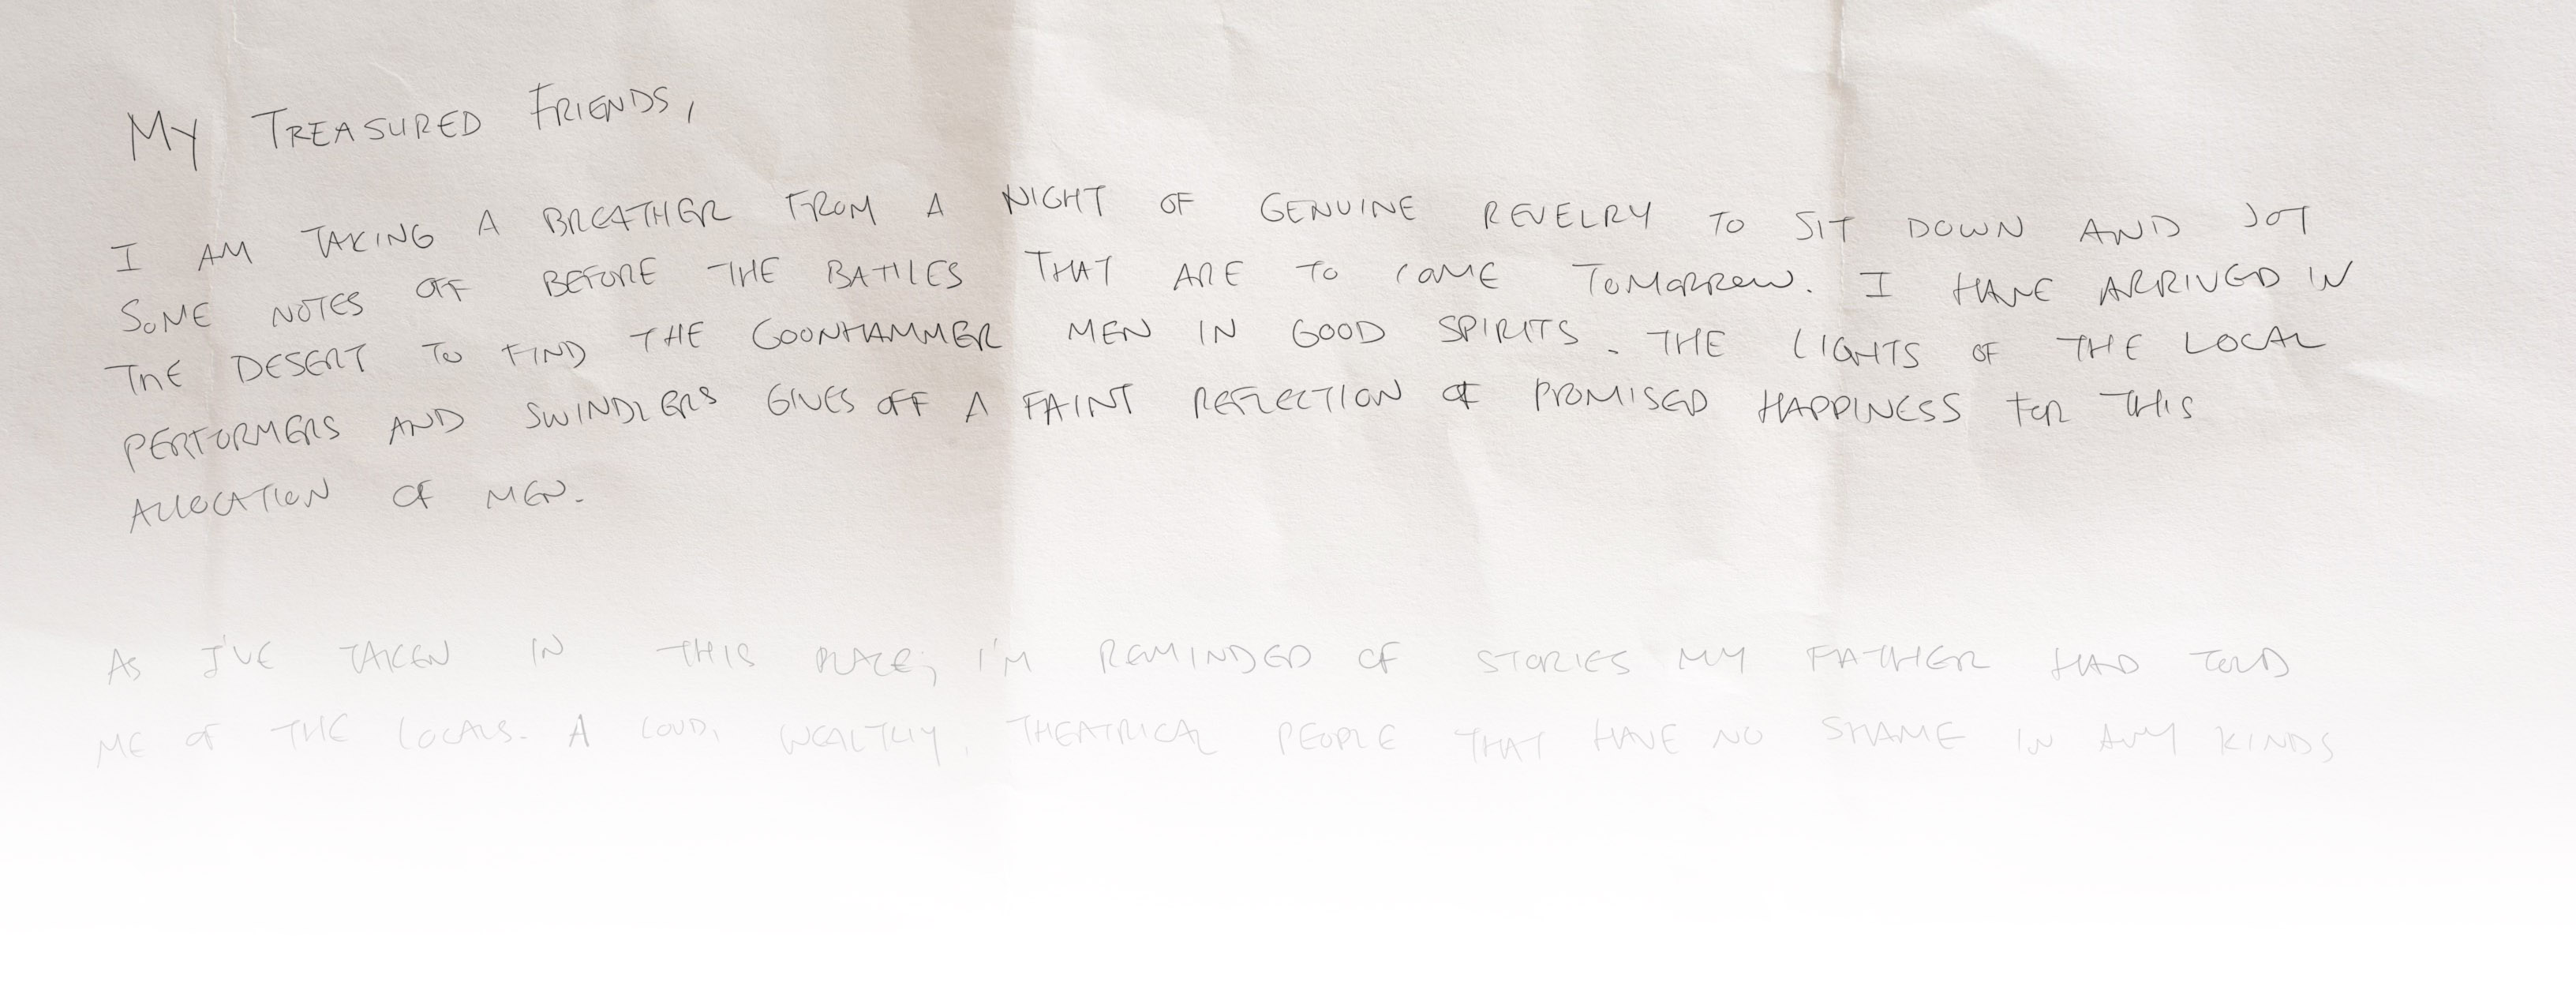 MY TREASURED FRIENDS,
I AM TAKING A BREATHER FROM A NIGHT OF GENUINE REVELRY TO SIT DOWN AND JOT
SOME NOTES OFF BEFORE THE BATTLES THAT ARE TO COME TOMORROW. I HAVE ARRIVED IN
THE DESERT TO FIND THE GOONHAMMER MEN IN GOOD SPIRITS. THE LIGHTS OF THE LOCAL
PERFORMERS AND SWINDLERS GIVES OFF A FAINT REFLECTION OF PROMISED HAPPINESS FOR THIS
ALLOCATION OF MEN.
AS I'VE TAKEN IN THIS PLACE, I'M REMINDED OF STORIES MY FATHER HAD TOLD
ME OF THE LOCALS. A LOUD, WEALTHY, THEATRICAL PEOPLE THAT HAVE NO SHAME IN ANY KINDS